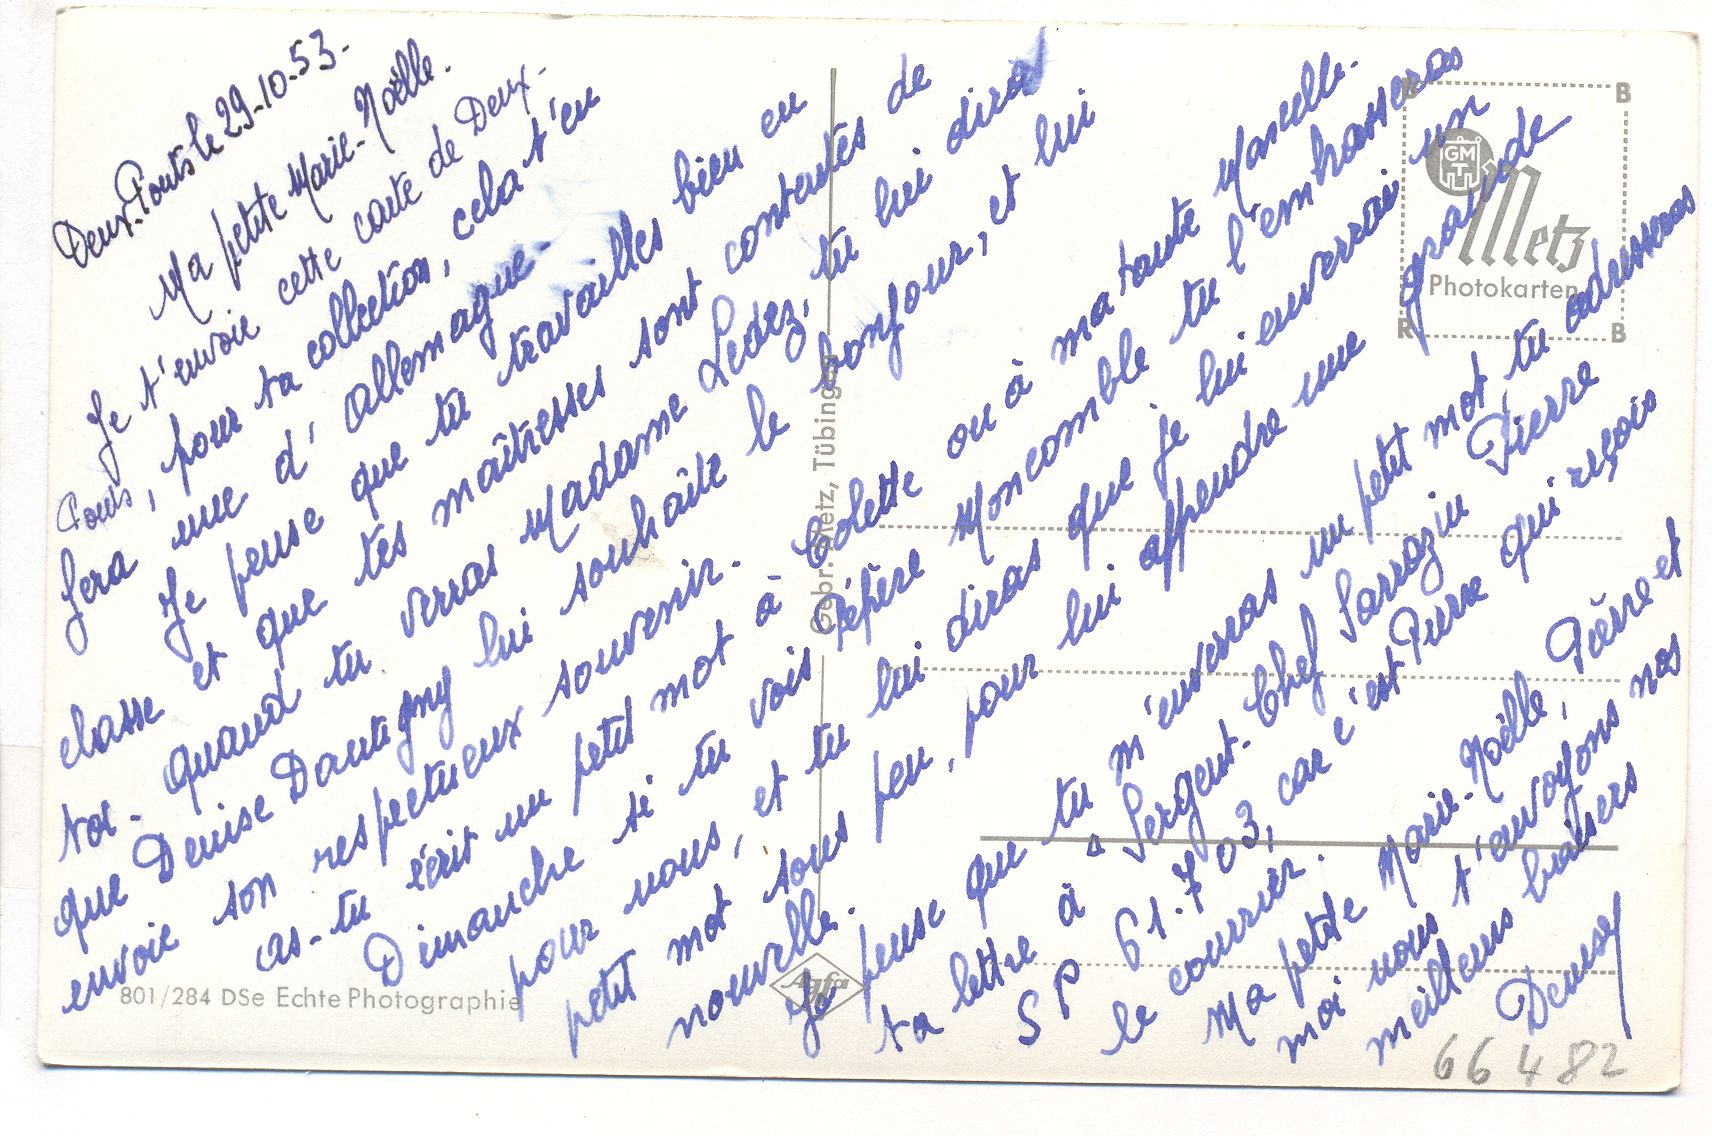 Deux-Ponts le 29-10-53-
Ma petite Marie-Noëlle.
Je t'envoie cette carte de Deux-
Ponts, pour ta collection, cela t'en
fera une d'Allemagne.
Je pense que tu travailles bien en
classe et que tes maîtresses sont contentes de
toi. Quand tu verras Madame Ledez, tu lui diras
que Denise Dantigny lui souhaite le bonjour, et lui
envoie son respectueux souvenir.
as-tu écrit un petit mot à Colette ou à ma tante Marcelle.
Dimanche si tu vois Pépère Moncomble tu l'embrasseras
pour nous, et tu lui diras que je lui enverrai un
petit mot sous peu, pour lui apprendre une grande
nouvelle.
Je pense que tu m'enverras un petit mot tu adresseras
ta lettre à Sergent-Chef Sarrazin Pierre
SP 61.703, car c'est Pierre qui reçois
le courrier.
Ma petite Marie-Noëlle, Pierre et
moi nous t'envoyons nos
meilleurs baisers
Denise
66482
GM
Metz
Photokarten
R B
R B
Gebr. Metz, Tübingen
801/284 DSe Echte Photographie
Agfa